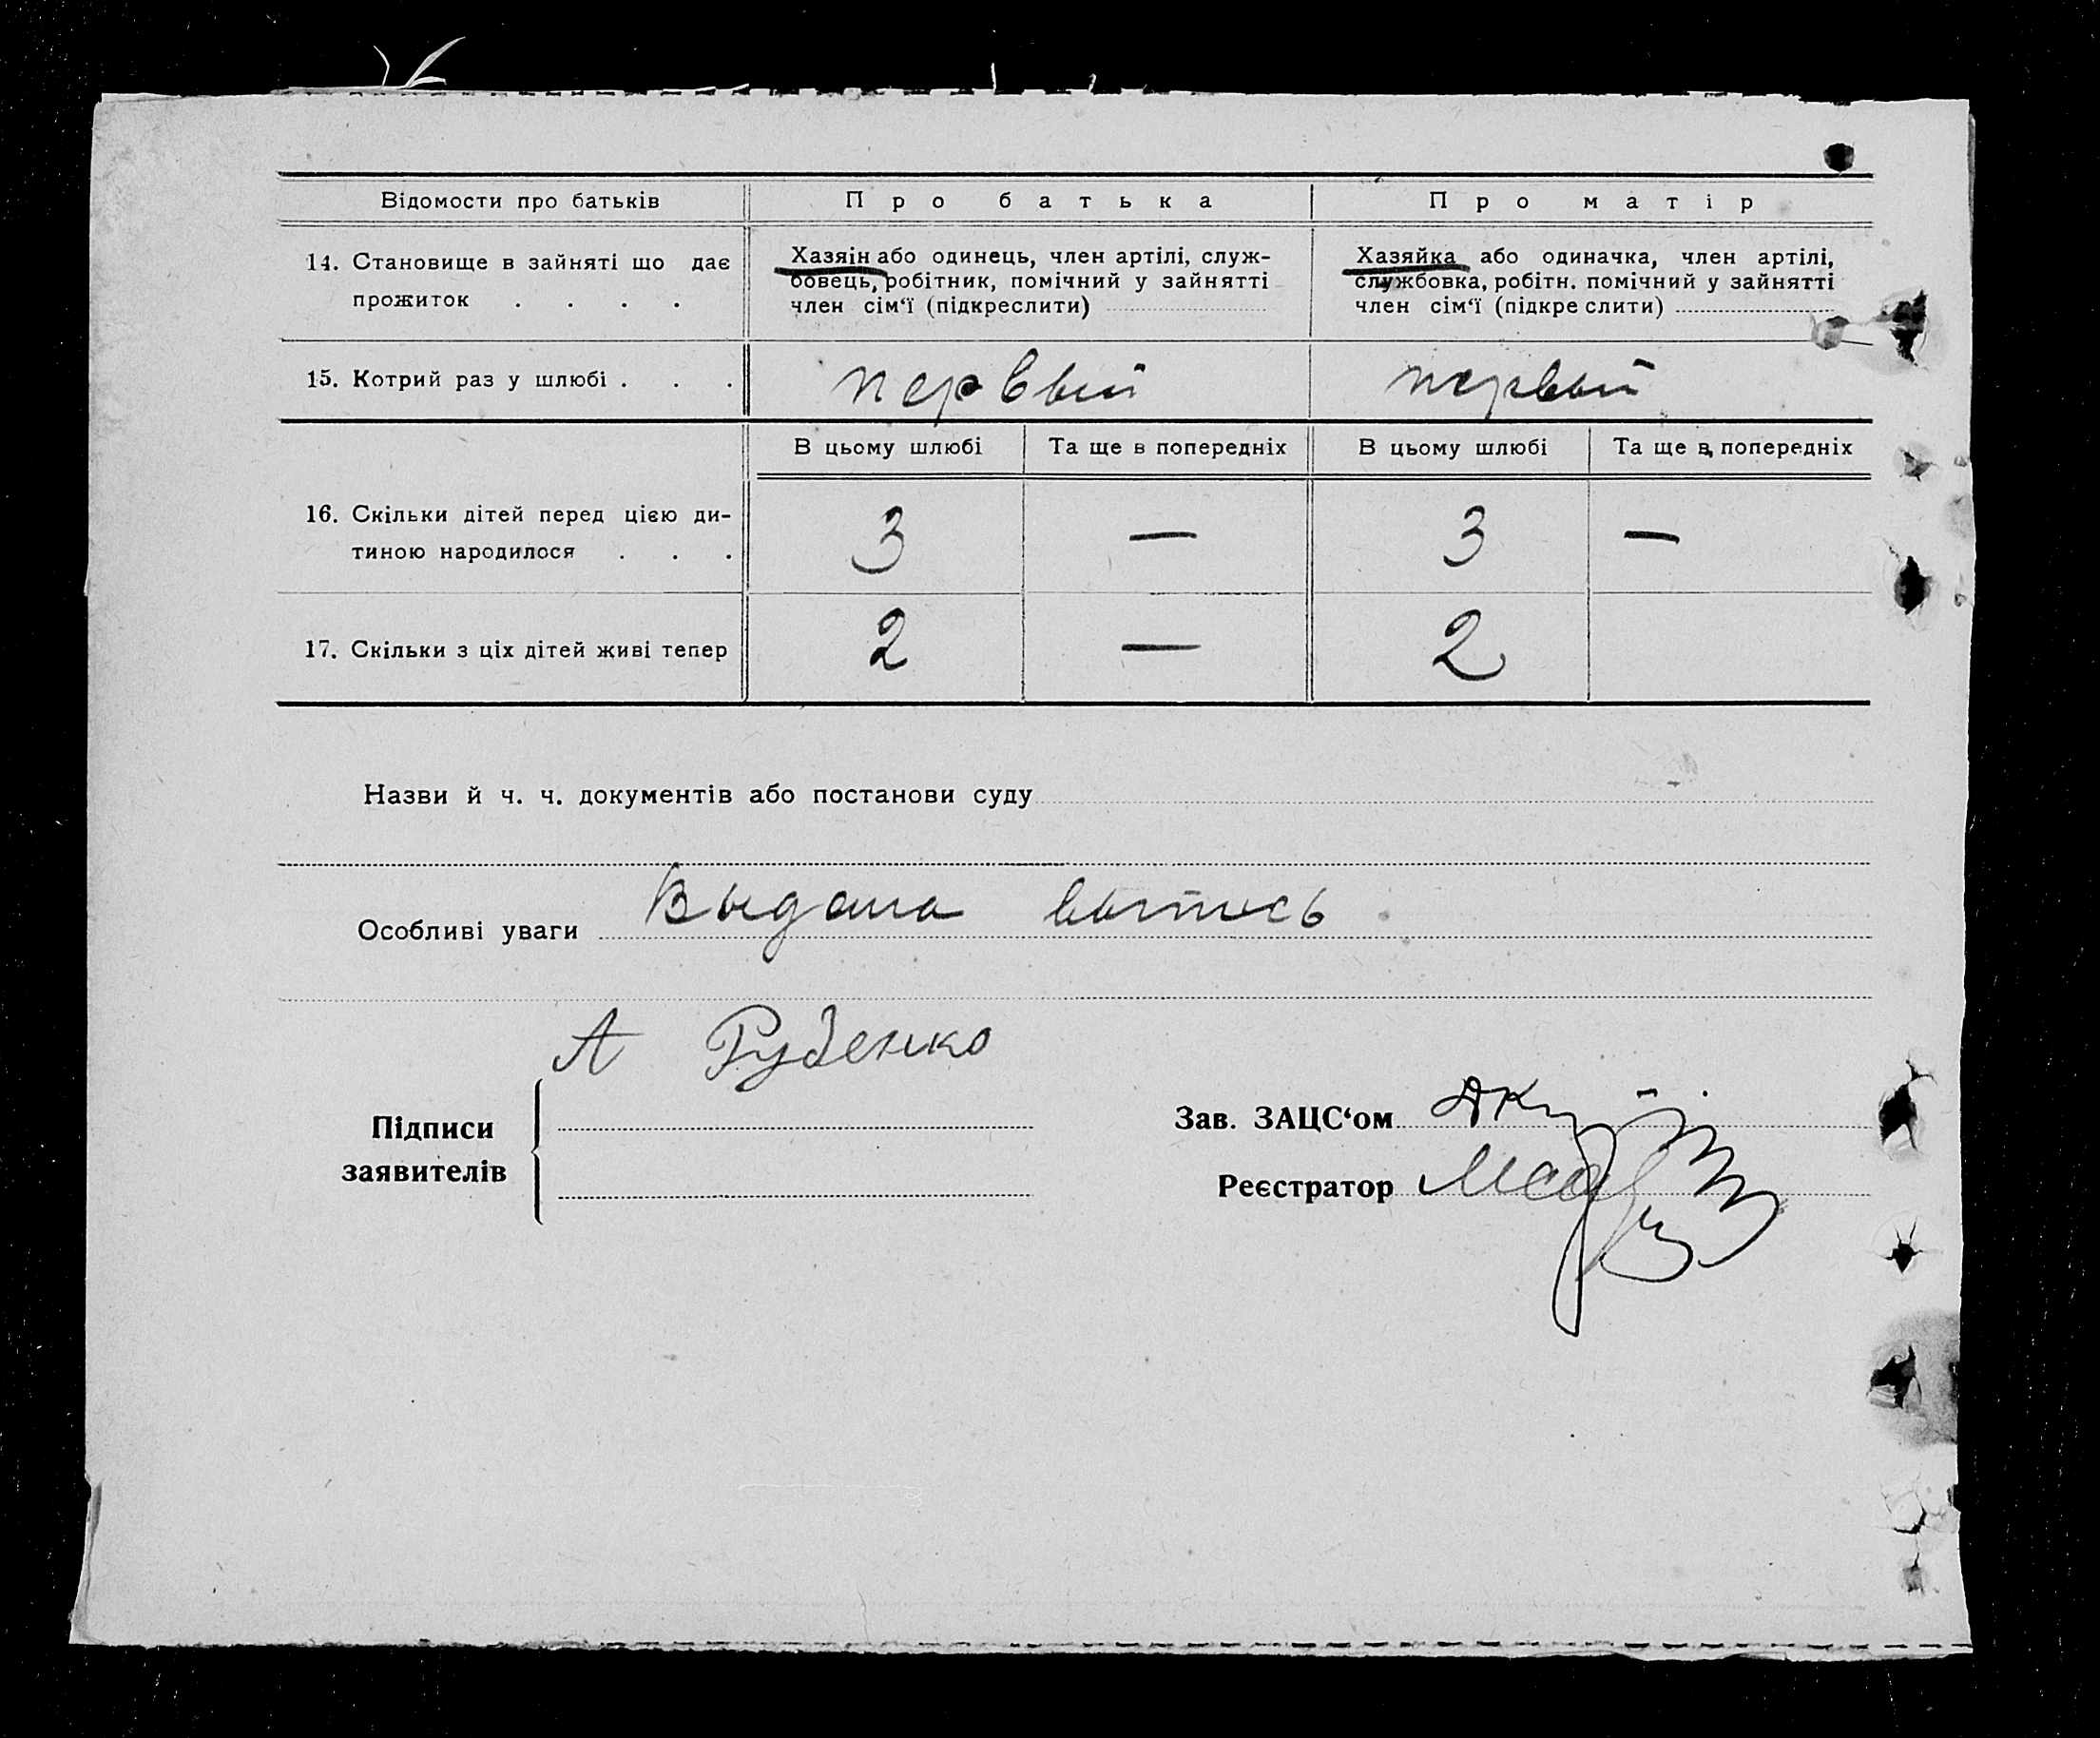 Відомости про батьків
Про батька
Про матір
14. Становище в зайняті що дає
прожиток . . . .
Хазяін або одинець, член артілі, служ-
бовець, робітник, помічний у зайнятті
член сім‘ї (підкреслити)
Хазяйка або одиначка, член артілі,
службовка, робітн. помічний у зайнятті
член сім‘ї (підкре слити)
15. Котрий раз у шлюбі . . .
первый
первый
В цьому шлюбі
Та ще в попередніх
В цьому шлюбі
Та ще в попередніх
16. Скільки дітей перед цією ди-
тиною народилося . . .
3
—
3
—
17. Скільки з ціх дітей живі тепер
2
—
2
Назви й ч. ч. документів або постанови суду
Особливі уваги Выдана выпись
А Руденко
Підписи
заявителів
Зав. ЗАЦС‘ом
Реєстратор